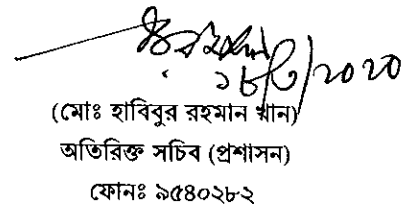 ১৮/৩/২০২০
(মোঃ হাবিবুর রহমান খান)
অতিরিক্ত সচিব (প্রশাসন)
ফোনঃ ৯৫৪০২৮২